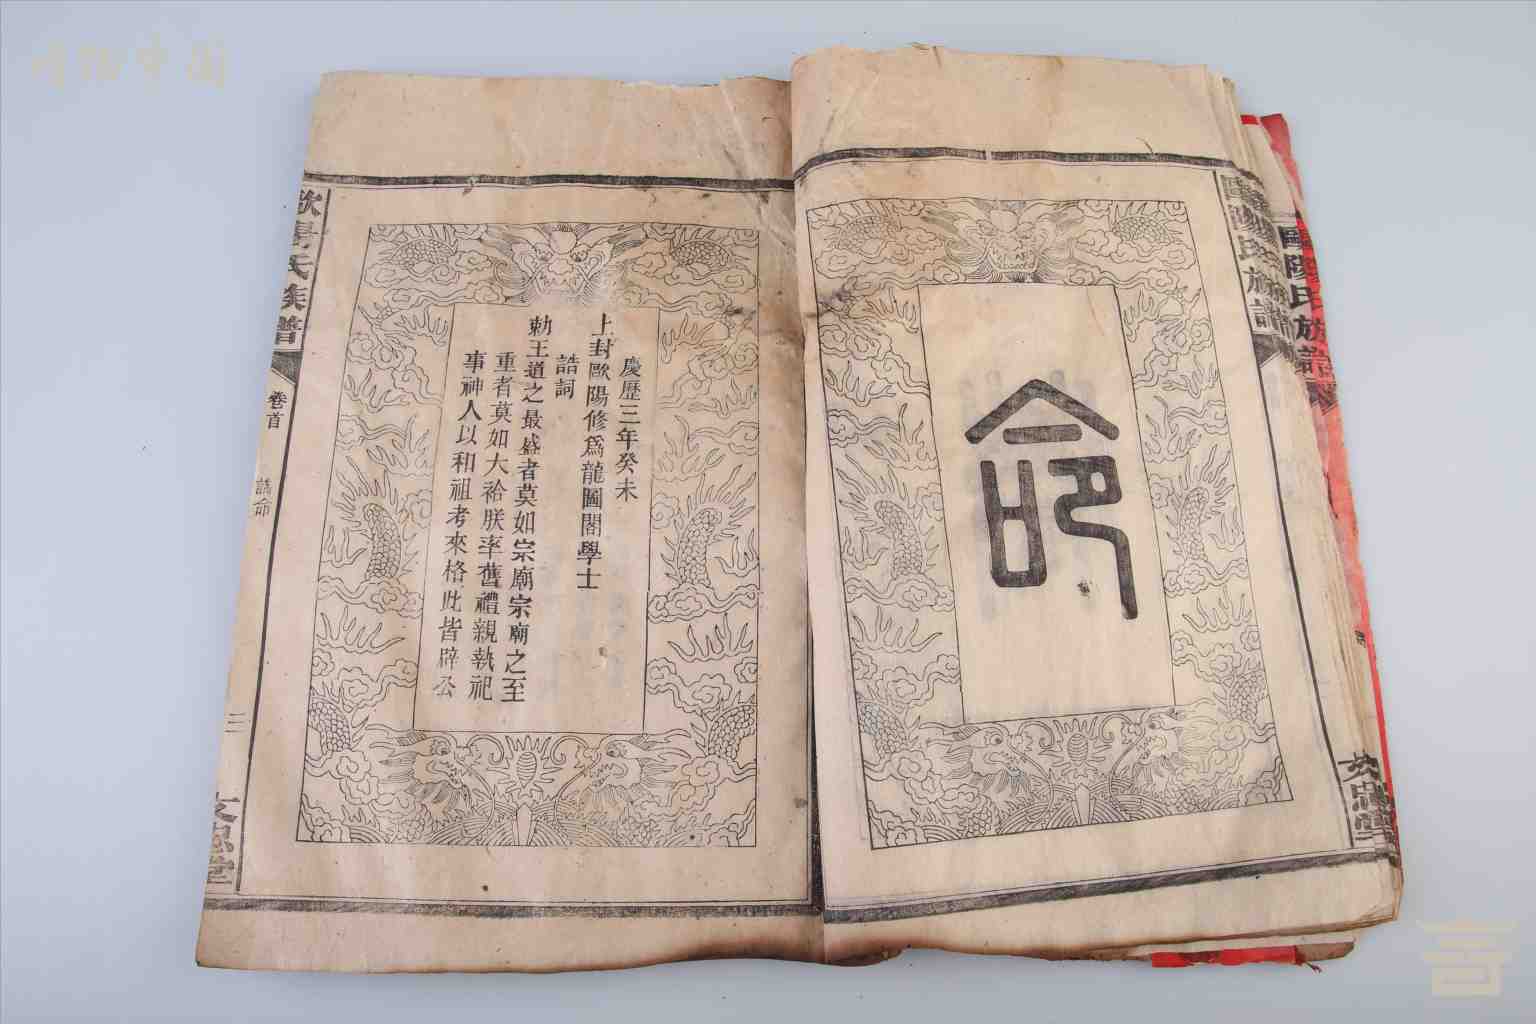 歐陽氏族譜
文忠堂
命
慶歷三年癸未
上封歐陽修爲龍圖閣學士
誥詞
勅王道之最盛者莫如宗廟宗廟之至
重者莫如大祫朕率舊禮親執祀
事神人以和祖考來格此皆辟公
歐陽氏族譜
卷首
誥命
三
文忠堂